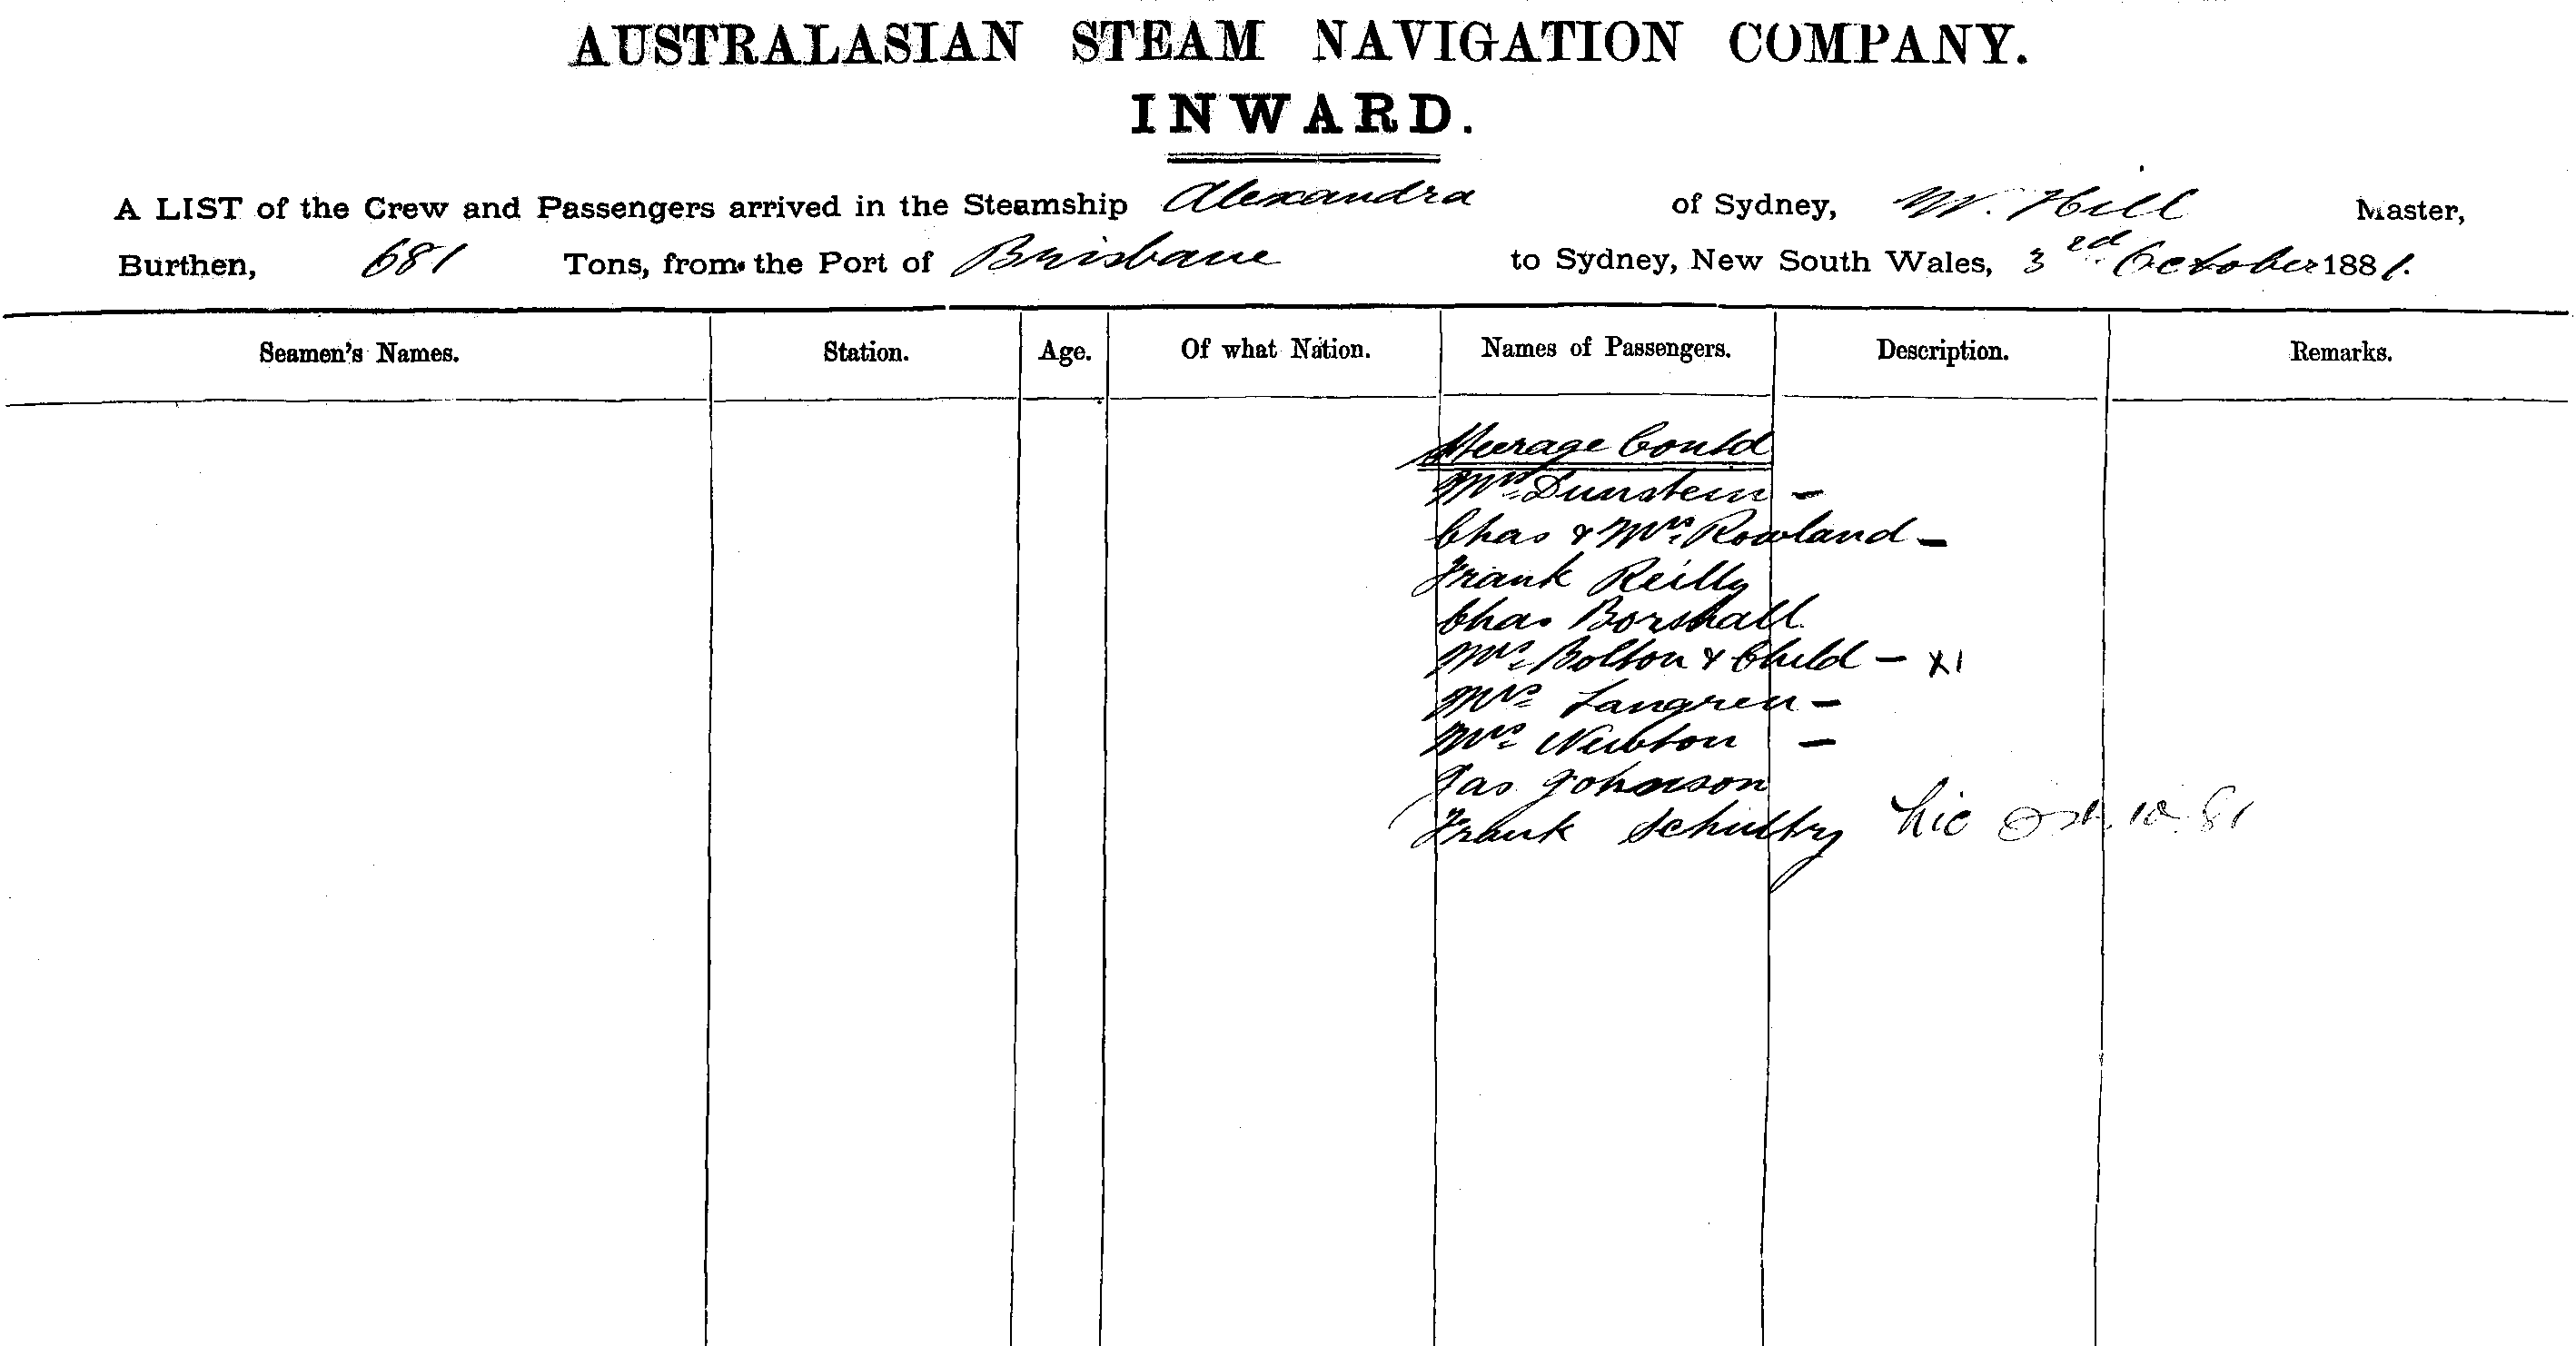 AUSTRALASIAN STEAM NAVIGATION COMPANY.
INWARD.
A LIST of the Crew and Passengers arrived in the Steamship Alexandra of Sydney, W. Hill Master,
Burthen, 681 Tons, from the Port of Brisbane to Sydney, New South Wales, 3rd October 1881.
Seamen's Names. Station. Age. Of what Nation. Names of Passengers. Description. Remarks.
Steerage Contd
Mrs Dunstein -
Chas & Mrs Rowland -
Frank Reilly
Chas Borshall
Mrs Bolton & Child - X1
Mrs Langren -
Mrs Newton -
Jas Johnson
Frank 10.81